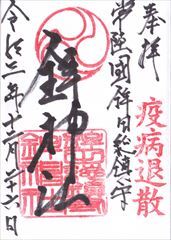 奉拝
疫病退散
常陸国鉾田総鎮守
鉾神社
令和二年十二月二十六日